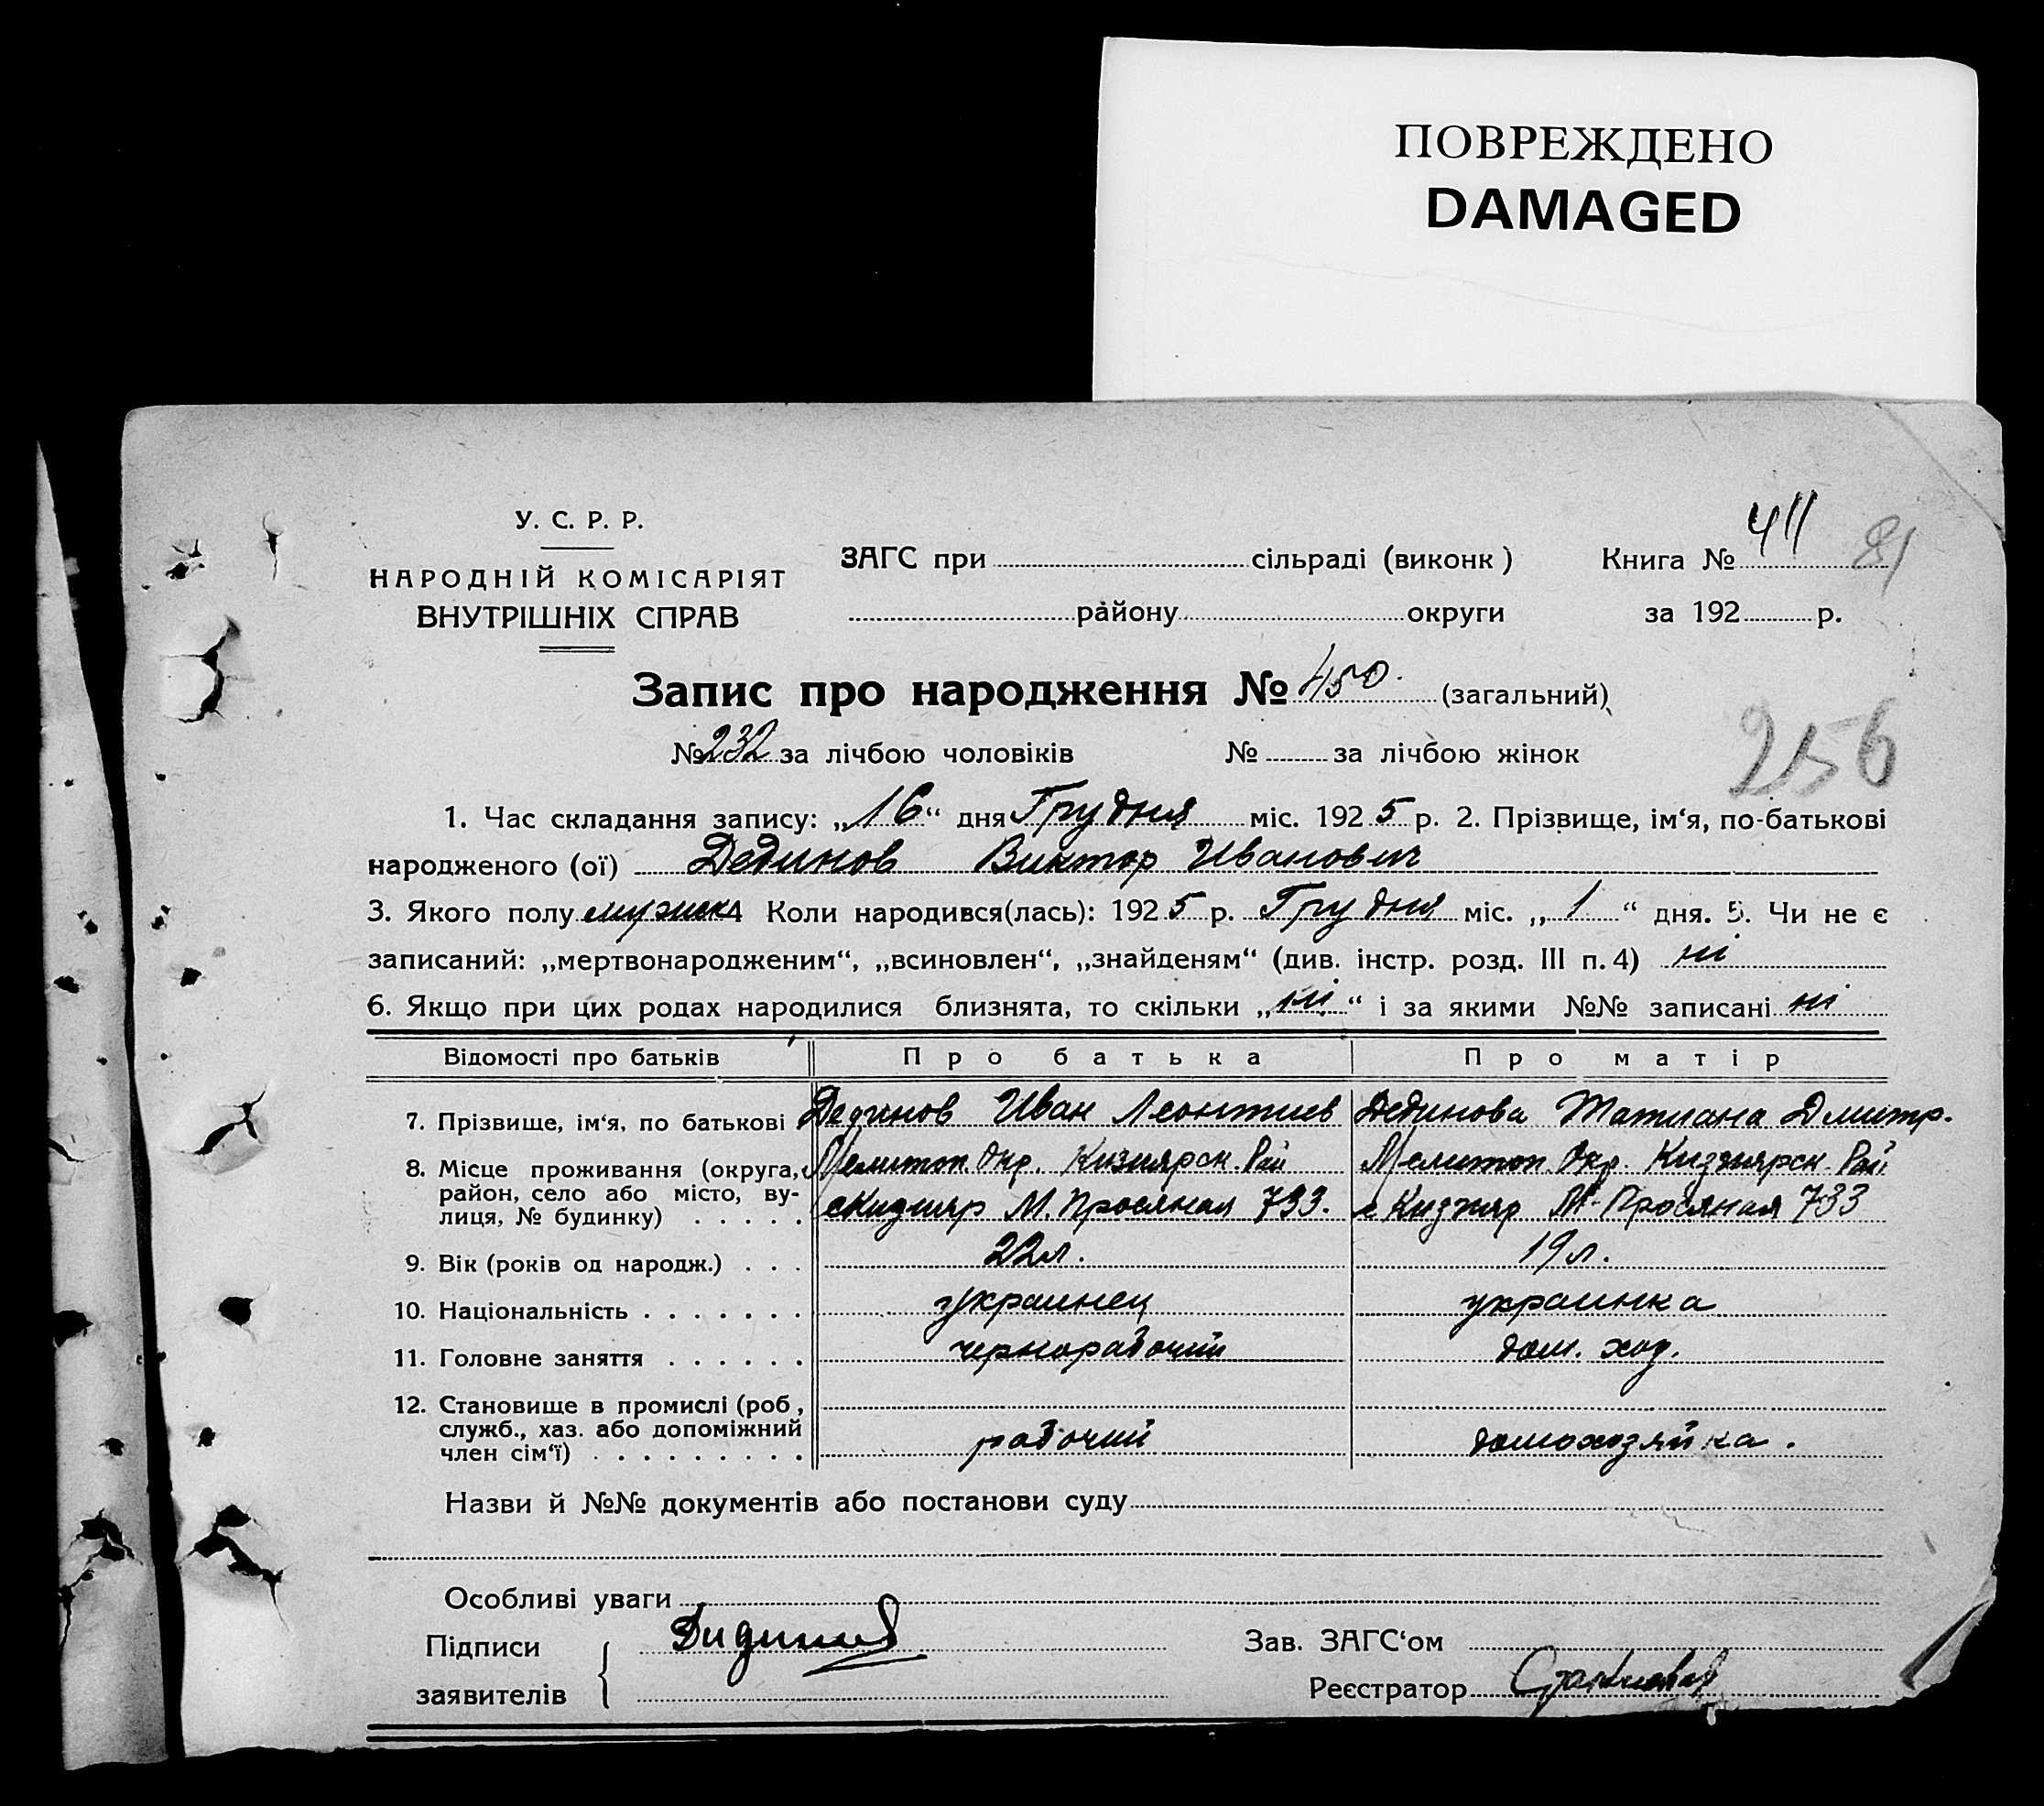 ПОВРЕЖДЕНО
DAMAGED
У. С. Р. Р.
НАРОДНІЙ КОМІСАРІЯТ
ВНУТРІШНІХ СПРАВ
ЗАГС при сільраді (виконк)
району округи
Книга № 411 81
за 192 р.
Запис про народження № 450. (загальний)
№ 232 за лічбою чоловіків № за лічбою жінок
256
1. Час складання запису: „16“ дня Грудня міс. 1925 р. 2. Прізвище, ім‘я, по-батькові
народженого (ої) Дединов Виктор Иванович
3. Якого полу мужск 4 Коли народився(лась): 1925 р. Грудня міс. „1“ дня. 5. Чи не є
записаний: „мертвонародженим“, „всиновлен“, „знайденям“ (див. інстр. розд. III п. 4) ні
6. Якщо при цих родах народилися близнята, то скільки „ні“ і за якими №№ записані ні
Відомості про батьків Про батька Про матір
7. Прізвище, ім‘я, по батькові Дединов Иван Леонтиев Дединова Татиана Дмитр.
8. Місце проживання (округа, Мелитоп. Окр. Кизиярск. Рай Мелитоп. Окр. Кизиярск. Рай
район, село або місто, ву-
лиця, № будинку) с Кизияр М. Просяная 733. с Кизияр М. Просяная 733
9. Вік (років од народж.) 22 л. 19 л.
10. Національність украинец украинка
11. Головне заняття чернорабочий дом. хоз.
12. Становище в промислі (роб,
служб., хаз. або допоміжний
член сім‘ї) рабочий домохозяйка.
Назви й №№ документів або постанови суду
Особливі уваги
Підписи Дидинов Зав. ЗАГС‘ом
заявителів Реєстратор